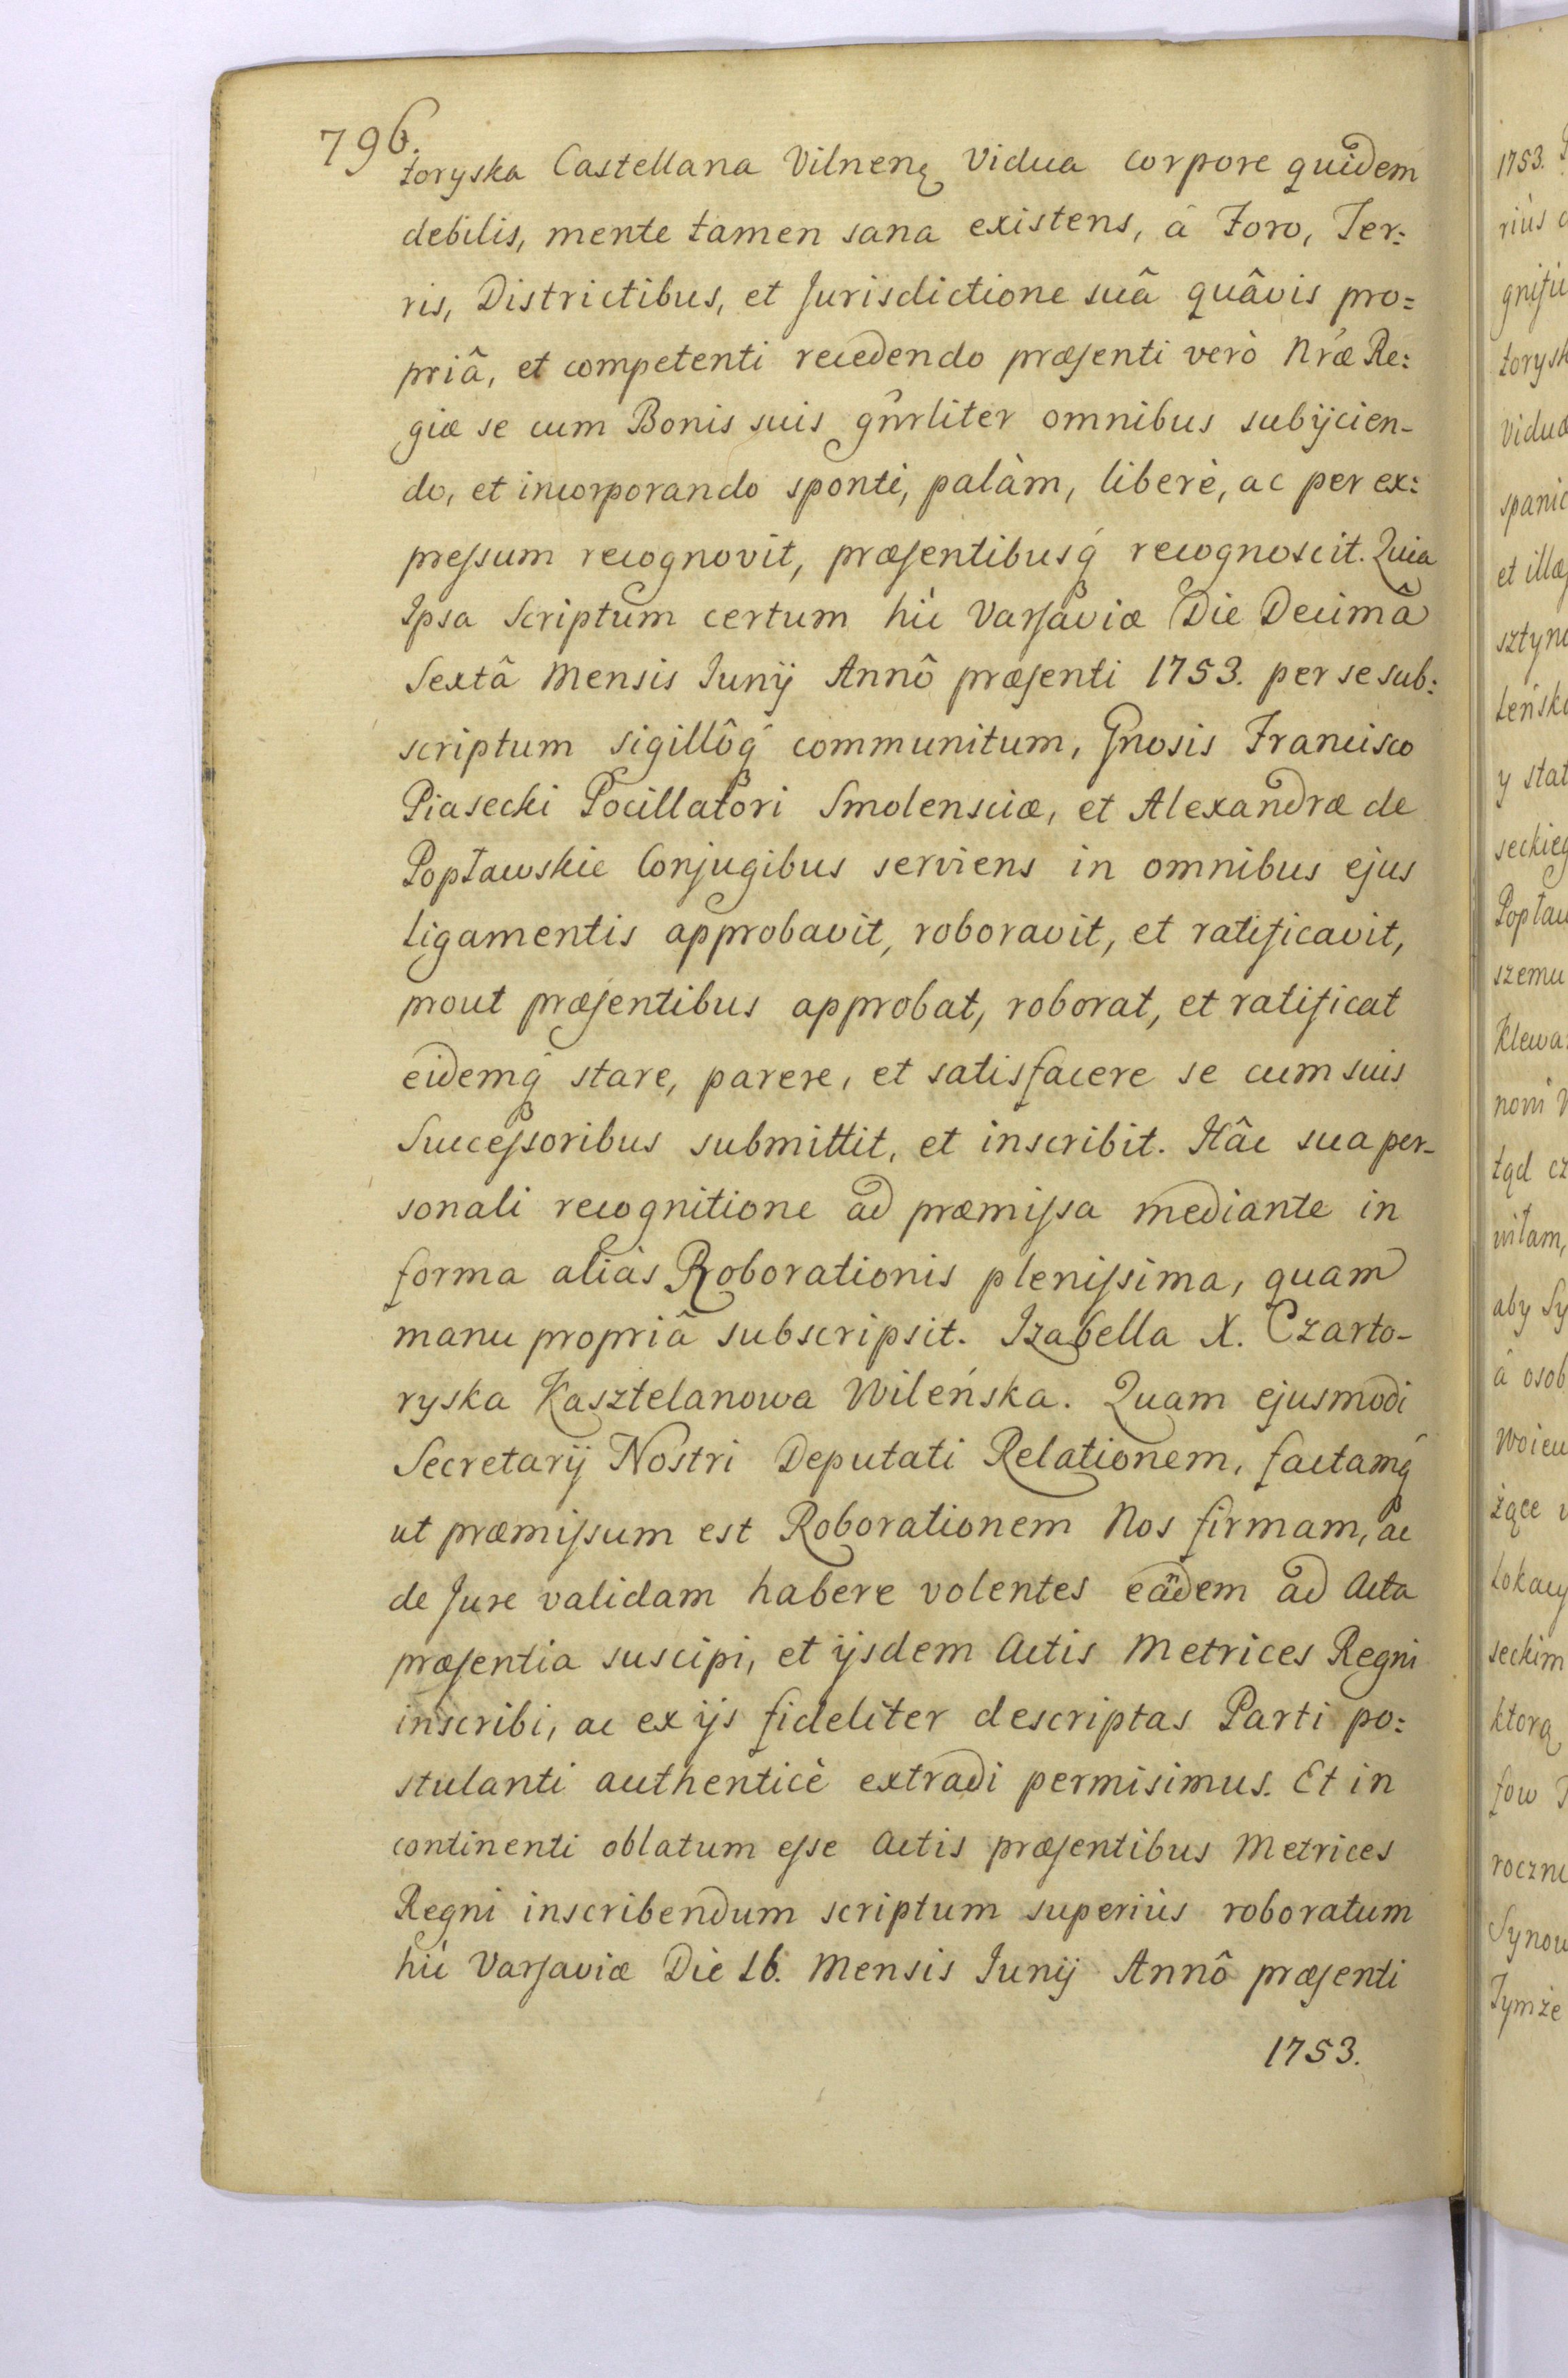 796.
toryska Castellana Vilnenę Vidua corpore quidem
debilis, mente tamen sana existens, â Foro, Ter:
ris, Districtibus, et Jurisdictione suâ quâvis pro=
priâ, et competenti recedendo præsenti verò Nræ Re:
giæ se cum Bonis suis gnrliter omnibus subijcien-
do, et incorporando spontè, palàm, liberè, ac per ex:
pressum recognovit, præsentibusq́ recognoscit. Quia
Ipsa Scriptum certum hic Varsaviæ Die Decimâ
Sextâ Mensis Junij Annô præsenti 1753. per se sub:
scriptum sigillôq́ communitum, Gnosis Francisco
Piasecki Pocillatori Smolensciæ, et Alexandræ de
Popławskie Conjugibus serviens in omnibus ejus
ligamentis approbavit, roboravit, et ratificavit,
prout præsentibus approbat, roborat, et ratificat
eidemq́ stare, parere, et satisfacere se cum suis
Successoribus submittit, et inscribit. Hâc sua per-
sonali recognitione ad præmissa mediante in
forma aliàs Roborationis plenissima, quam
manu propriâ subscripsit. Izabella X. Czarto-
ryska Kasztelanowa Wileńska. Quam ejusmodi
Secretarij Nostri Deputati Relationem, factamq́
ut præmissum est Roborationem Nos firmam, ac
de Jure validam habere volentes eadem ad Acta
præsentia suscipi, et ijsdem Actis Metrices Regni
inscribi, ac ex ijs fideliter descriptas Parti po:
stulanti authenticè extradi permisimus. Et in
continenti oblatum esse Actis præsentibus Metrices
Regni inscribendum scriptum superiùs roboratum
hic Varsaviæ Die 16. Mensis Junij Annô præsenti
1753.
1753.
riùs
torysk
vidua
et illæ
y stat
Popław
szemu
aby Sy
â osob
żące
seckim
ktorą
Tymże